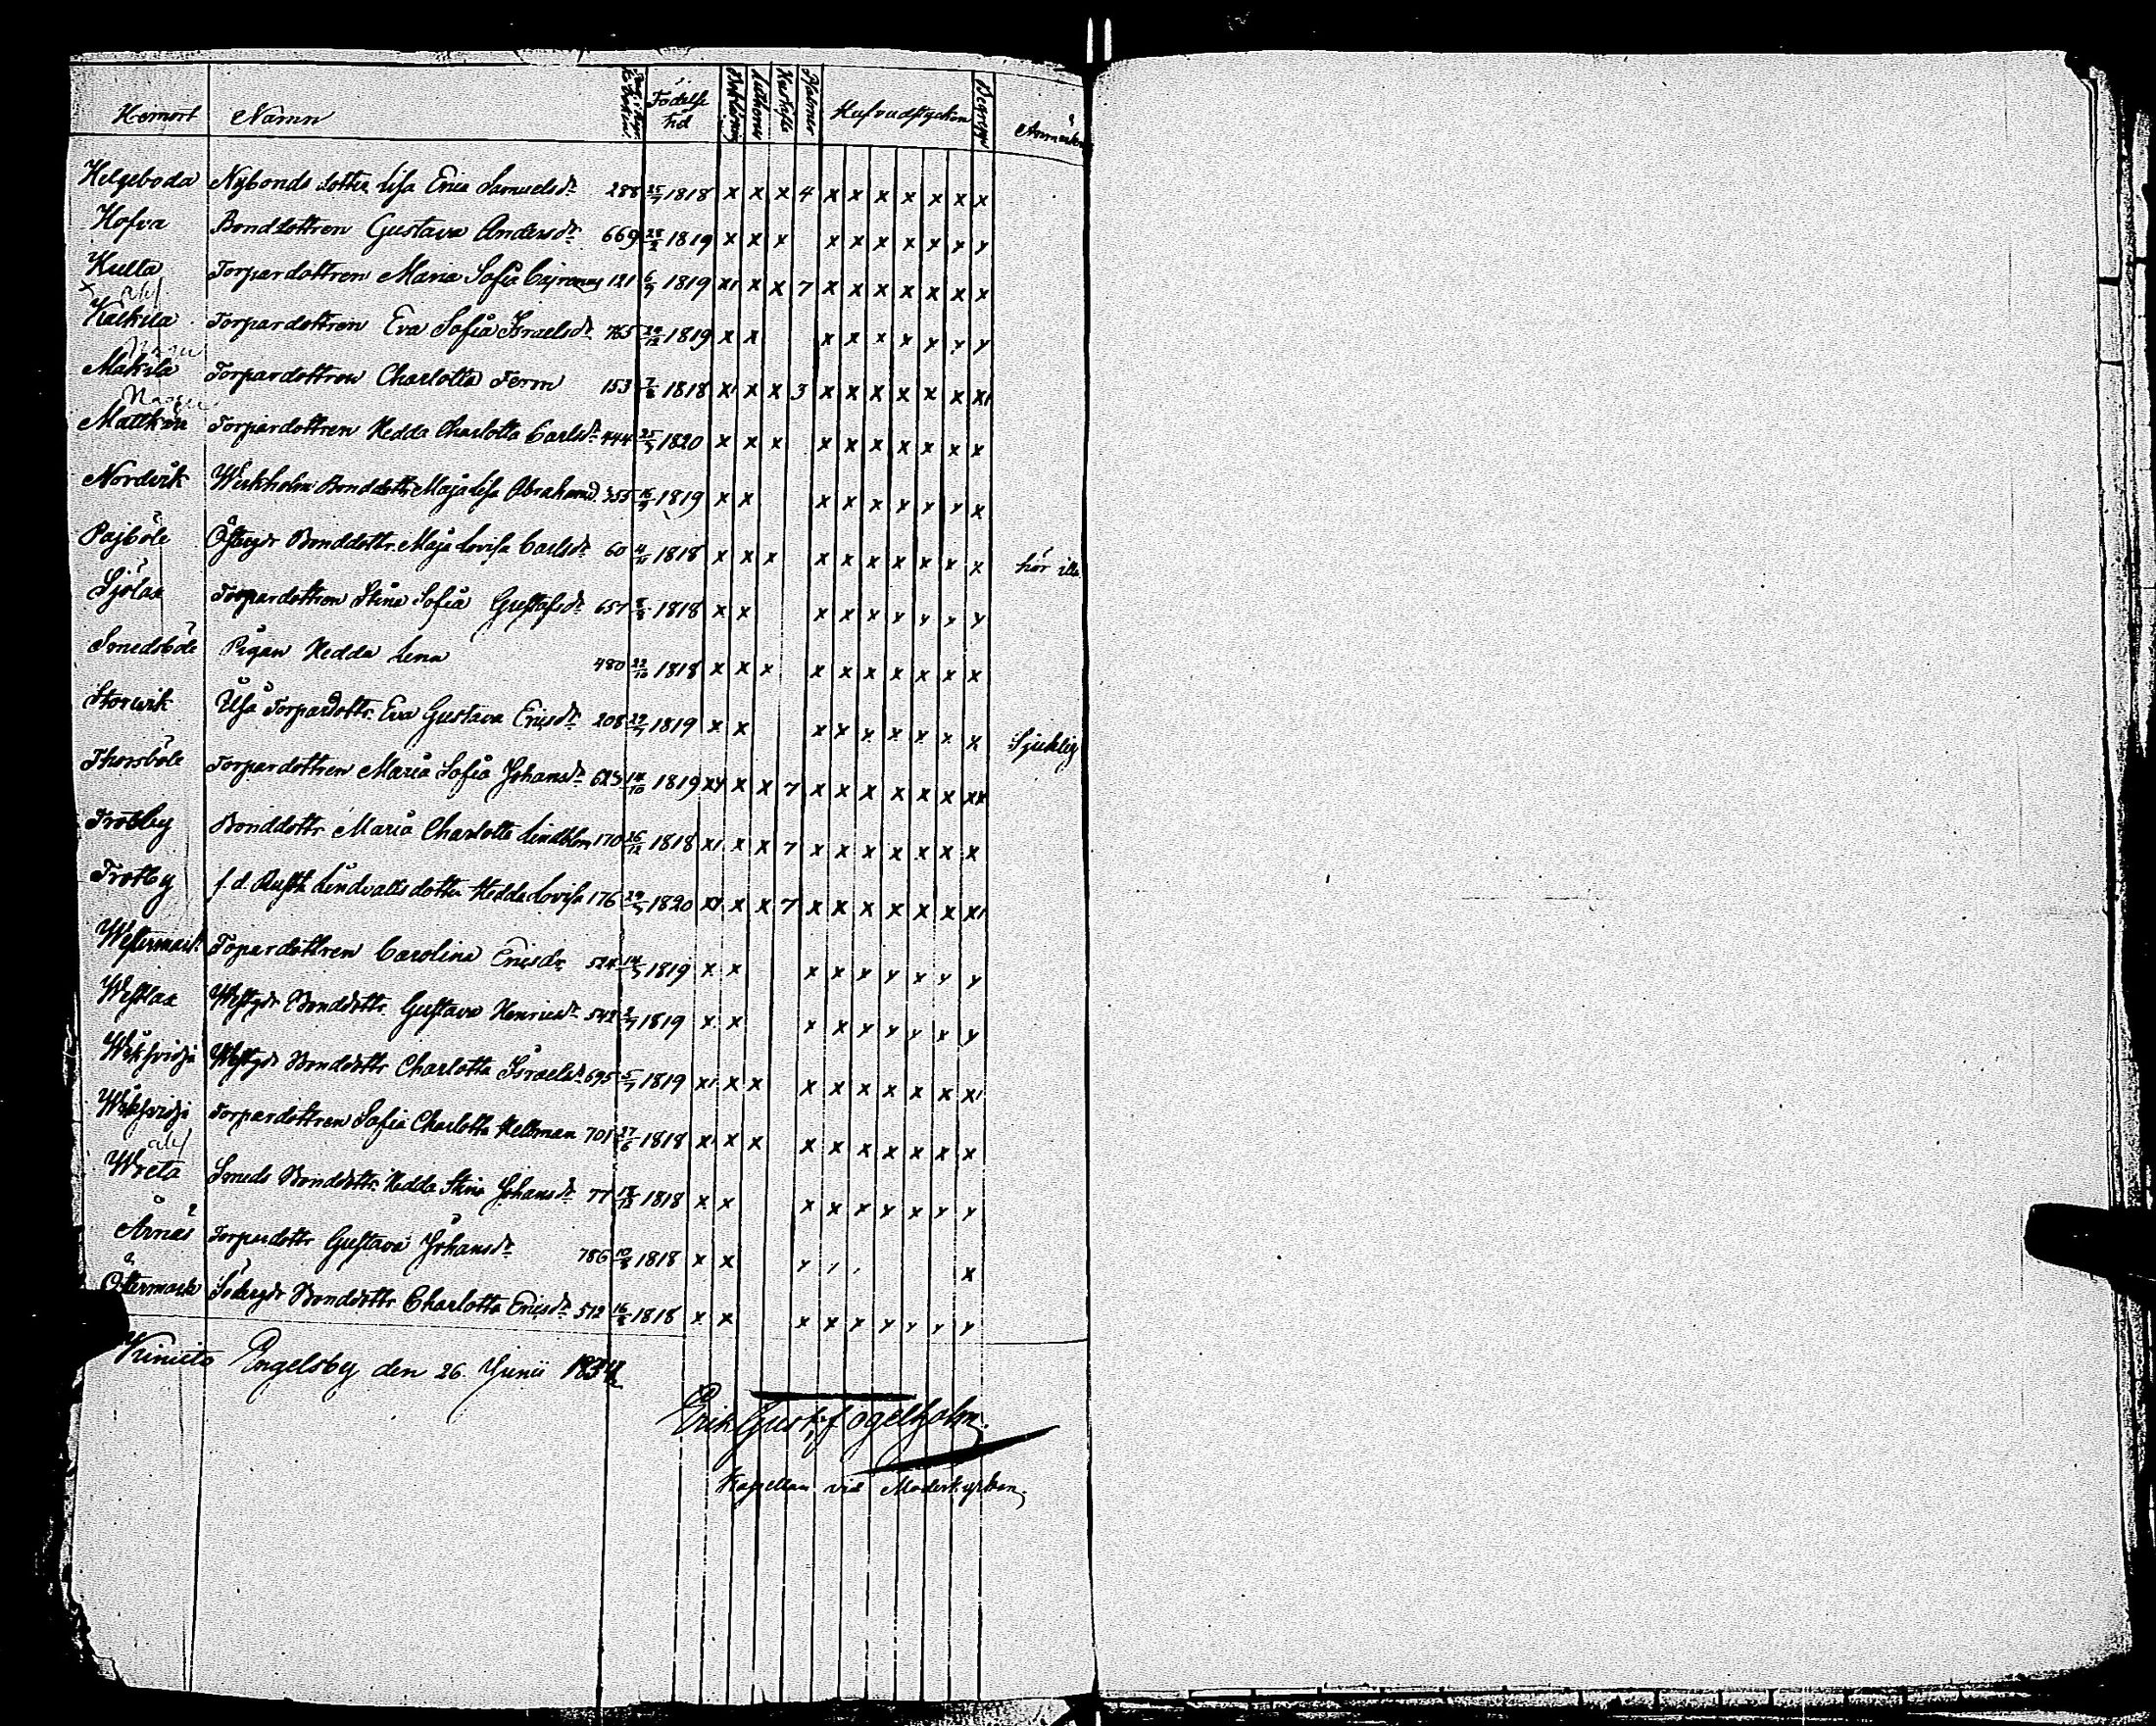 Hemort Namn Födelse tid Psalmer Hufvudstycken Begrepp Anmärkn
Helgeboda Nybonds dotter Lisa Erica Samuelsdr 288 25/7 1818 x x x 4 x x x x x x x
Hofva Bonddottren Gustava Andersdr 669 28/2 1819 x x x x x x x x x x
Kulla Torpardottren Maria Sofia Cajrenus 121 6/9 1819 x x x 7 x x x x x x x
x
Kackila Torpardottren Eva Sofia Israelsdr 765 29/12 1819 x x x x x x x x x
Makila Torpardottren Charlotta Ferm 153 7/8 1818 x x x 3 x x x x x x x
Nagu
Mattkärr Torpardottren Hedda Charlotta Carlsdr 444 25/3 1820 x x x x x x x x x x
Nordvik Wirkholm Bonddottr Maja Lisa Abrahamsd. 355 1819 x x x x x x x x x
Pajböle Östergdr Bonddottr. Maja Lovisa Carlsdr 60 4/11 1818 x x x x x x x x x x hör illa
Sjölax Torpardottren Stina Sofia Gustafsdr 657 1818 x x x x x x x x x
Smedsböle Pigan Hedda Lena 480 22/10 1818 x x x x x x x x x x
Storvik Ulfå Torpardottr. Eva Gustava Ericsdr 208 29/7 1819 x x x x x x x x x Sjuklig
Thorsböle Torpardottren Maria Sofia Johansdr 623 14/10 1819 xx x x 7 x x x x x x xx
Trotby Bonddottr Maria Charlotta Lindblom 170 26/12 1818 x x x 7 x x x x x x x
Trotby f.d. Rusth Lindvalls dotter Hedda Lovisa 176 29/3 1820 x x x 7 x x x x x x x
Westermark Topardottren Carolina Ericsdr 524 14/3 1819 x x x x x x x x x
Westlax Westgdr Bonddottr Gustava Henricsdr 542 1819 x x x x x x x x x
Wekhvidja Westgdr Bonddottr Charlotta Israelsdr 695 5/7 1819 x x x x x x x x x x
Wekhvidja Torpardottren Sofia Charlotta Hellman 701 27/6 1818 x x x x x x x x x x
Wreta Smeds Bonddottr. Hedda Stina Johansdr 77 18/12 1818 x x x x x x x x x
Årnäs Torpardottr Gustava Johansdr 786 10/8 1818 x x x x
Östermark Södergdr Bonddottr Charlotta Ericsdr 512 16/8 1818 x x x x x x x x x
Kimito Engelsby den 26 Junii 1834
Erik Gust. Fogelholm.
Kapellan vid Moderkyrkan.